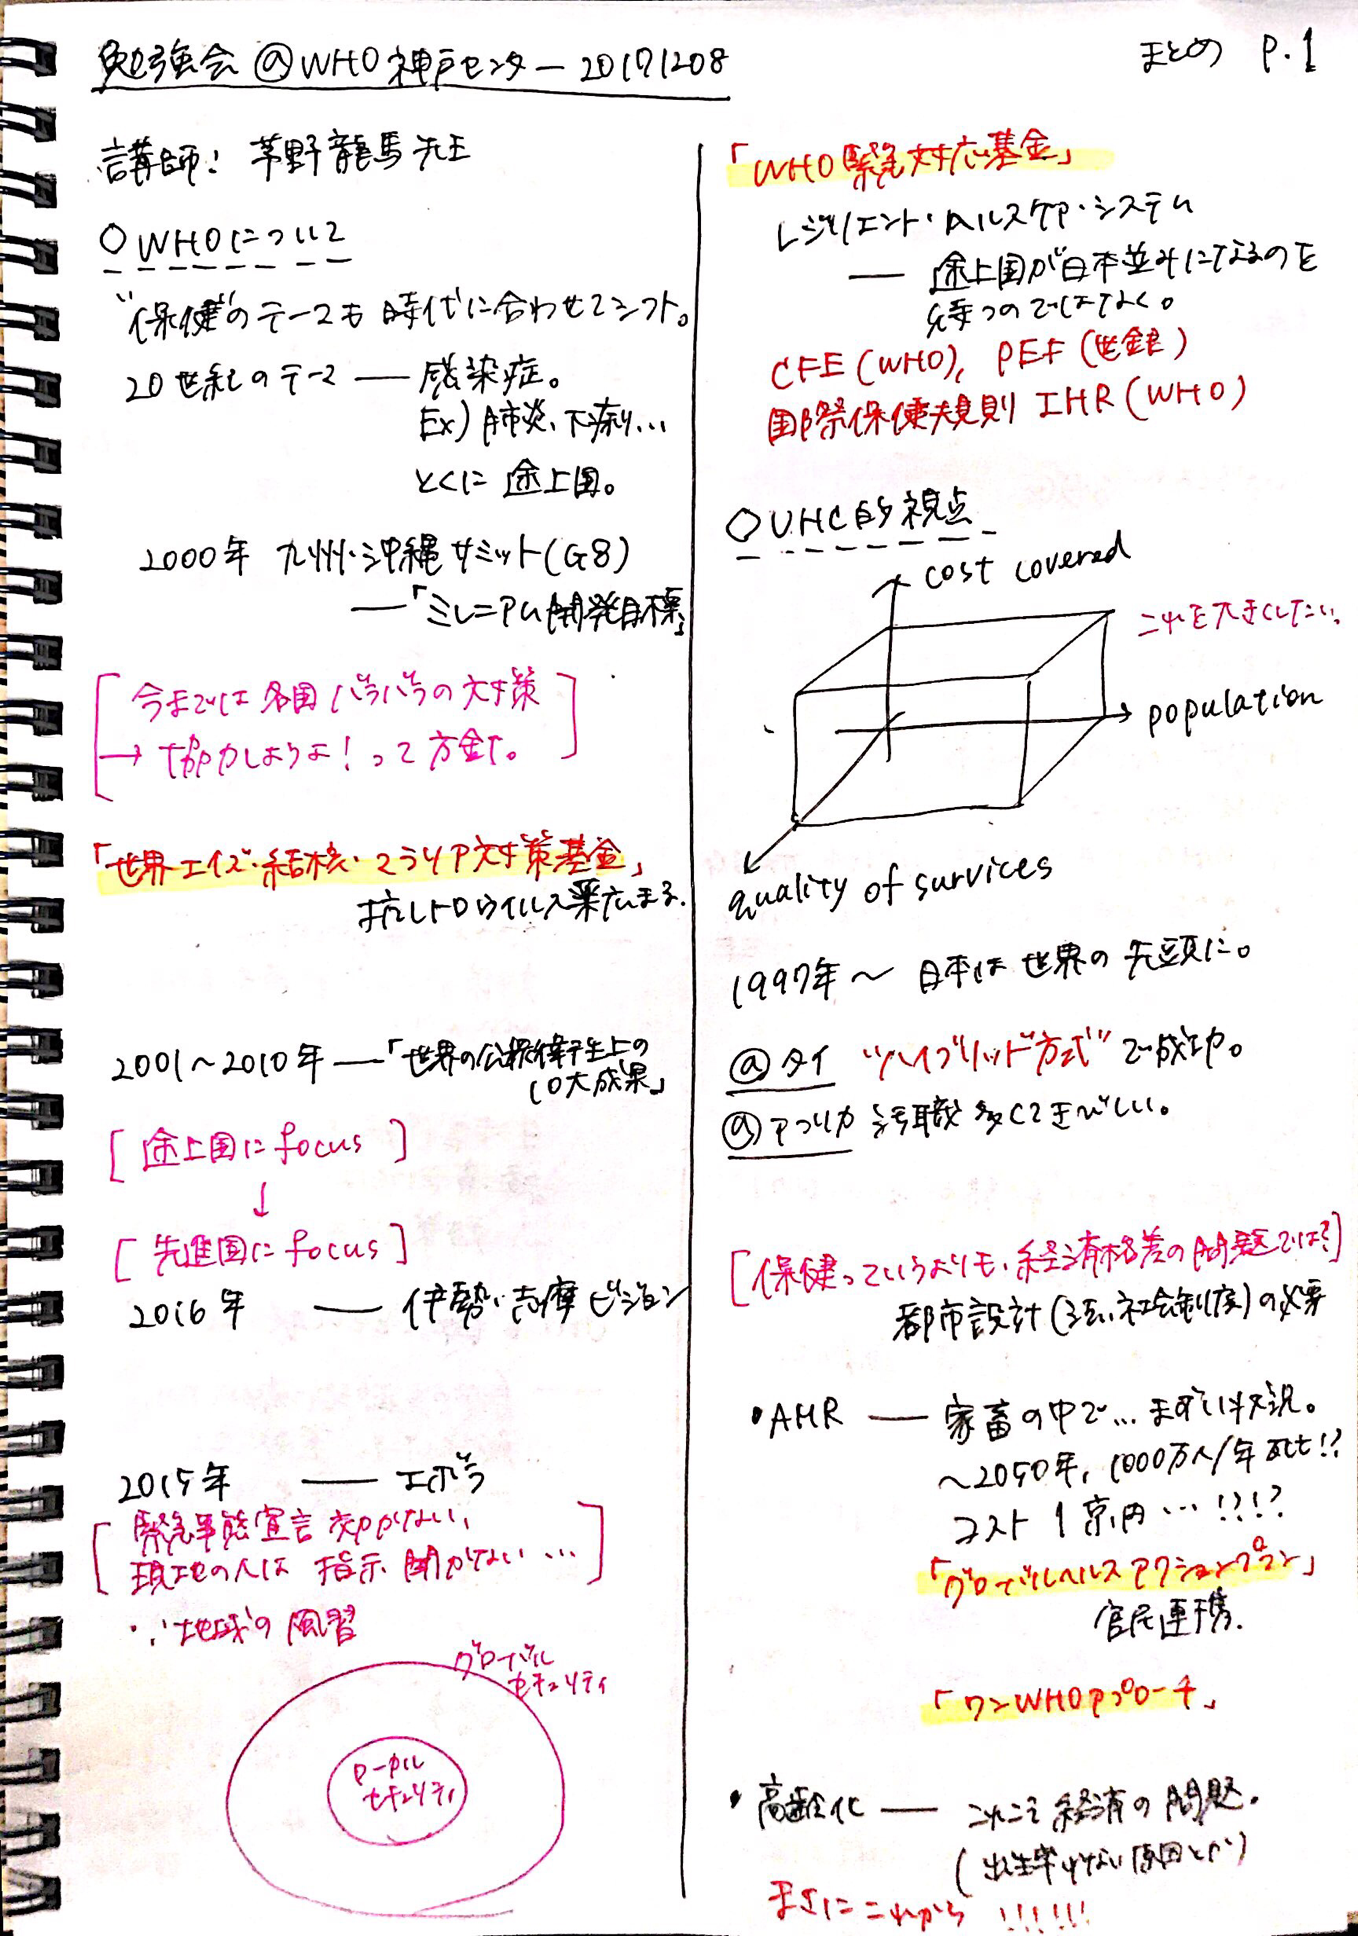 勉強会 @WHO神戸センター 20171208
まとめ P.1
講師: 茅野龍馬先生
○WHOについて
"保健"のテーマも時代に合わせてシフト。
20世紀のテーマ ― 感染症。
Ex) 肺炎、下痢...
とくに 途上国。
2000年 九州・沖縄サミット(G8)
―「ミレニアム開発目標」
[今までは各国バラバラの対策
→ 協力しようよ!って方針。]
「世界エイズ・結核・マラリア対策基金」
抗レトロウイルス薬広まる.
2001〜2010年 ―「世界の公衆衛生上の
10大成果」
[途上国に focus]
↓
[先進国に focus]
2016年 ― 伊勢・志摩ビジョン
2015年 ― エボラ
[緊急事態宣言 効かない、
現地の人は 指示 聞かない…]
∵地域の風習
グローバル
セキュリティ
ローカル
セキュリティ
「WHO緊急対応基金」
レジリエント・ヘルスケア・システム
― 途上国が日本並みになるのを
待つのではなく。
CFE (WHO), PEF (世銀)
国際保健規則 IHR (WHO)
○UHC的視点
cost covered
これを大きくしたい。
population
quality of survices
1997年〜 日本は世界の先頭に。
@タイ "ハイブリッド方式"で成功。
@アフリカ 汚職多くてきびしい。
[保健っていうよりも、経済格差の問題では?]
都市設計(法、社会制度)の必要
・AMR ― 家畜の中で...まずい状況。
〜2050年, 1000万人/年 死亡!?
コスト 1京円…!?!?
「グローバルヘルスアクションプラン」
官民連携.
「ワンWHOアプローチ」
・高齢化 ― これこそ経済の問題.
(出生率少ない原因とか)
まさにこれから !!!!!!